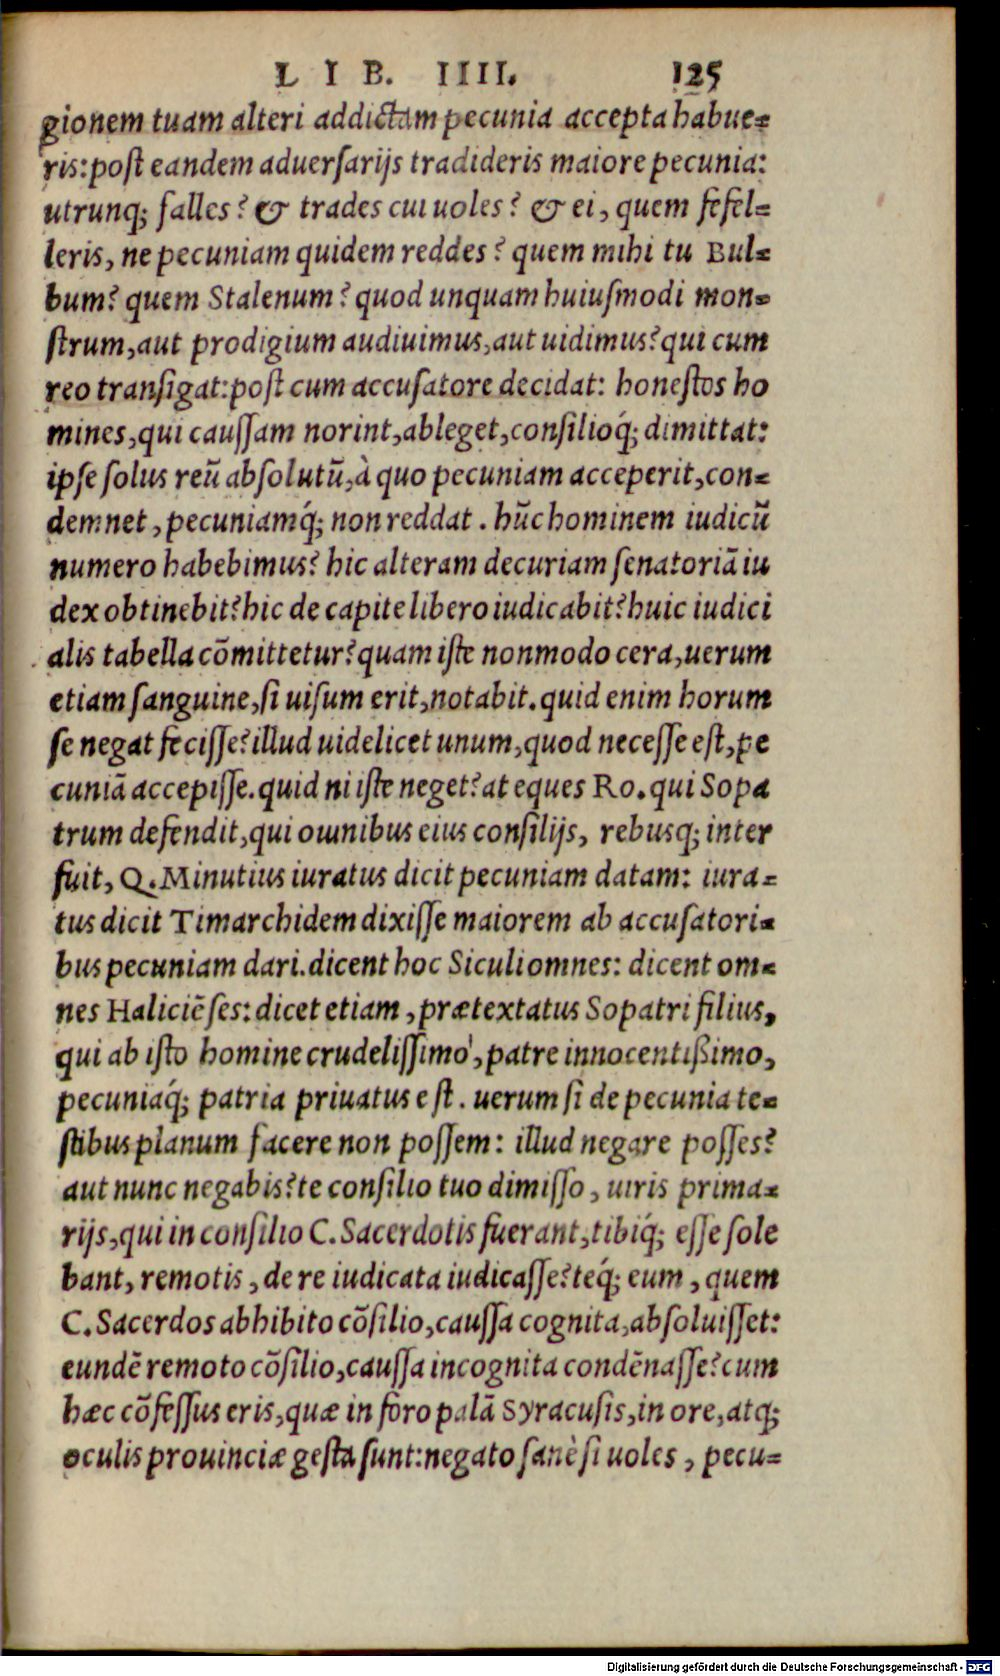 LIB. IIII. 125
gionem tuam alteri addictam pecunia accepta habue=
ris:post eandem aduersarijs tradideris maiore pecunia:
utrunq; falles? & trades cui uoles? & ei, quem fefel=
leris, ne pecuniam quidem reddes? quem mihi tu Bul=
bum? quem Stalenum? quod unquam huiusmodi mon=
strum,aut prodigium audiuimus,aut uidimus?qui cum
reo transigat:post cum accusatore decidat: honestos ho
mines,qui caussam norint,ableget,consilioq́; dimittat:
ipse solus reū absolutū,à quo pecuniam acceperit,con=
demnet, pecuniamq́; non reddat. hūc hominem iudicū
numero habebimus? hic alteram decuriam senatoriā iu
dex obtinebit?hic de capite libero iudicabit?huic iudici
alis tabella cōmittetur?quam iste nonmodo cera,uerum
etiam sanguine,si uisum erit,notabit.quid enim horum
se negat fecisse?illud uidelicet unum,quod necesse est,pe
cuniā accepisse.quid ni iste neget?at eques Ro.qui Sopa
trum defendit,qui omnibus eius consilijs, rebusq; inter
fuit, Q.Minutius iuratus dicit pecuniam datam: iura=
tus dicit Timarchidem dixisse maiorem ab accusatori=
bus pecuniam dari.dicent hoc Siculi omnes: dicent om=
nes Haliciēses:dicet etiam, prætextatus Sopatri filius,
qui ab isto homine crudelissimo, patre innocentißimo,
pecuniaq́; patria priuatus est. uerum si de pecunia te=
stibus planum facere non possem: illud negare posses?
aut nunc negabis?te consilio tuo dimisso, uiris prima=
rijs,qui in consilio C.Sacerdotis fuerant,tibiq́; esse sole
bant, remotis, de re iudicata iudicasse?teq́; eum, quem
C.Sacerdos abhibito cōsilio,caussa cognita,absoluisset:
eundē remoto cōsilio,caussa incognita condēnasse?cum
hæc cōfessus eris,quæ in foro palā Syracusis,in ore,atq;
oculis prouinciæ gesta sunt:negato sanè si uoles, pecu=
Digitalisierung gefördert durch die Deutsche Forschungsgemeinschaft - DFG